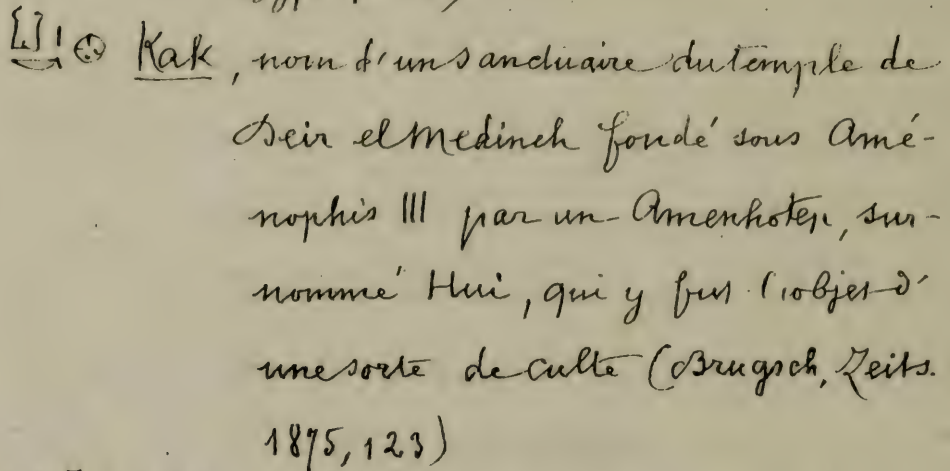 Kak, nom d'un sanctuaire du temple de
Deir el Medineh fondé sous Amé-
nophis III par un Amenhotep, sur-
nommé Hui, qui y fut l'objet d'
une sorte de culte (Brugsch, Zeits.
1875, 123)